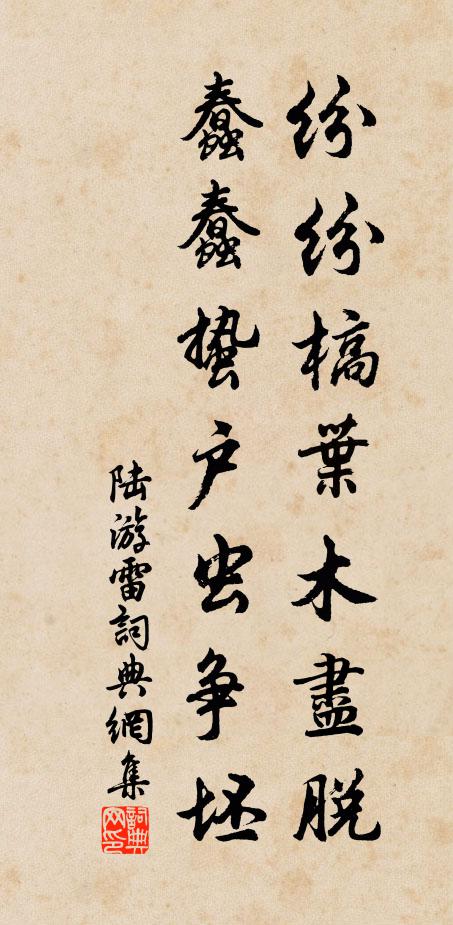 纷纷槁葉木盡脱
蠢蠢蛰户虫争坯
陆游雷詞典網集
詞典网印